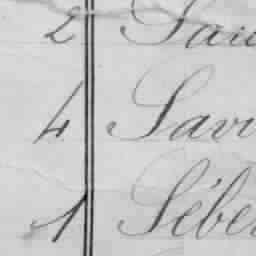 2 Sau
4 Savi
1 Sébe